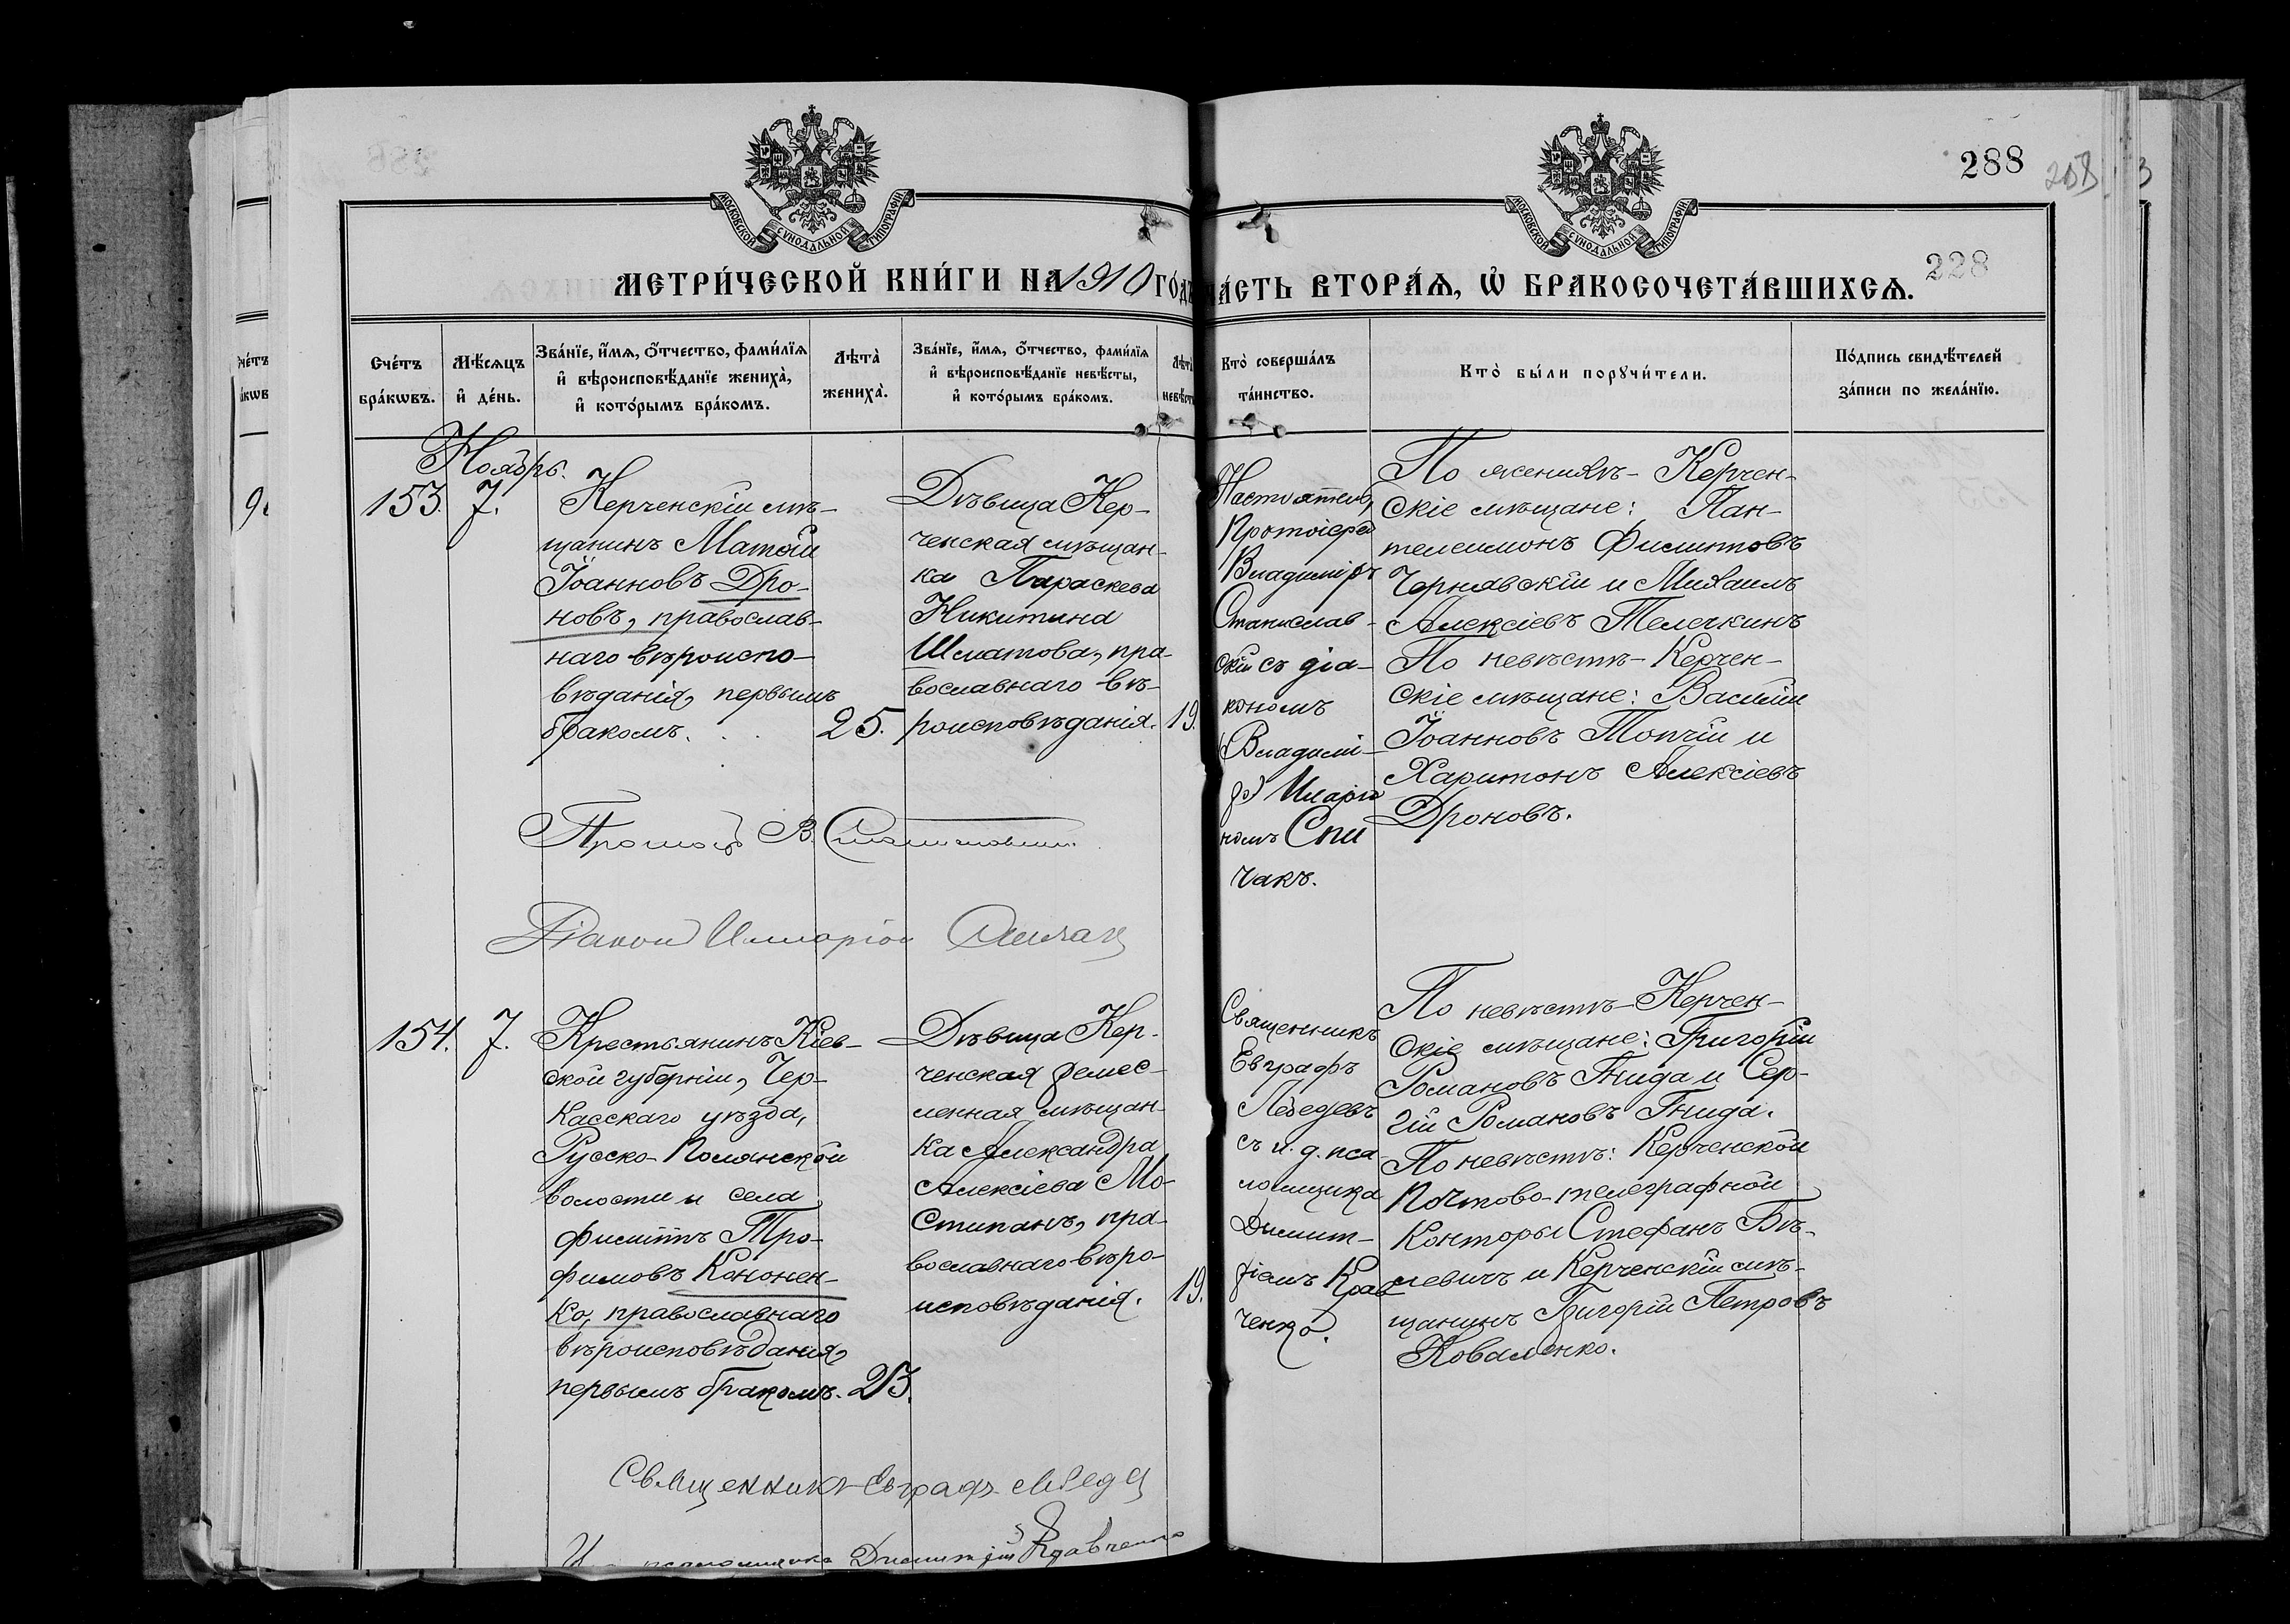 288
228
МОСКОВСКОЙ СѴНОДАЛЬНОЙ ТИПОГРАФІИ
МОСКОВСКОЙ СѴНОДАЛЬНОЙ ТИПОГРАФІИ
МЕТРИ́ЧЕСКОЙ КНИ́ГИ НА 1910 ГО́ДЪ
ЧА́СТЬ ВТОРА́Ѧ, Ѡ҆ БРАКОСОЧЕТА́ВШИХСѦ.
Сче́тъ
бра́кѡвъ.
Мѣ́сяцъ
и҆ де́нь.
Зва́нїе, и҆́мѧ, о҆́тчество, фами́лїѧ
и҆ вѣроисповѣ́данїе жениха̀,
и҆ кото́рымъ бра́комъ.
Лѣта̀
жениха̀.
Зва́нїе, и҆́мѧ, о҆́тчество, фами́лїѧ
и҆ вѣроисповѣ́данїе невѣ́сты,
и҆ кото́рымъ бра́комъ.
Лѣта̀
невѣ́сты
Кто̀ соверша́лъ
та́инство.
Кто̀ бы́ли порꙋчи́тели.
По́дпись свидѣ́телей
за́писи по жела́нїю.
Ноябрь.
153. 7.
Керченскій мѣ-
щанинъ Матѳій
Іоанновъ Дро-
новъ, православ-
наго вѣроиспо-
вѣданія, первымъ
бракомъ. . .
25.
Дѣвица Кер-
ченская мѣщан-
ка Параскева
Никитина
Шматова, пра-
вославнаго вѣ-
роисповѣданія.
19.
Настоятель,
Протоіерей
Владиміръ
Станислав-
скій съ діа-
кономъ
Владимі-
Иларіо
номъ Спи
чакъ.
По женихѣ - Керчен-
скіе мѣщане: Пан-
телеимонъ Филипповъ
Чернявскій и Михаилъ
Алексіевъ Телечкинъ
По невѣстѣ - Керчен-
скіе мѣщане: Василій
Іоанновъ Топчій и
Харитонъ Алексіевъ
Дроновъ.
В. Станиславскій
Діакон Илларіон Спичак
154. 7.
Крестьянинъ Кіев-
ской губерніи, Чер-
касскаго уѣзда,
Русско-Полянской
волости и села
Филиппъ Тро-
фимовъ Кононен-
ко, православнаго
вѣроисповѣданія,
первымъ бракомъ. 23.
Дѣвица Кер-
ченская ремес-
ленная мѣщан-
ка Александра
Алексіева Мо-
стипанъ, пра-
вославнаго вѣро-
исповѣданія.
19.
Священникъ
Евграфъ
Лебедевъ
съ и. д. пса-
ломщика
Димит-
ріемъ Крав
ченко.
По невѣстѣ - Керчен-
скіе мѣщане: Григорій
Романовъ Гнида и Сер-
гій Романовъ Гнида.
По невѣстѣ: Керченской
Почтово-телеграфной
Конторы Стефанъ Бѣ-
левичъ и Керченскій мѣ-
щанинъ Григорій Петровъ
Коваленко.
Священникъ Евграфъ Лебед
псаломщика Димитрій Кравченко